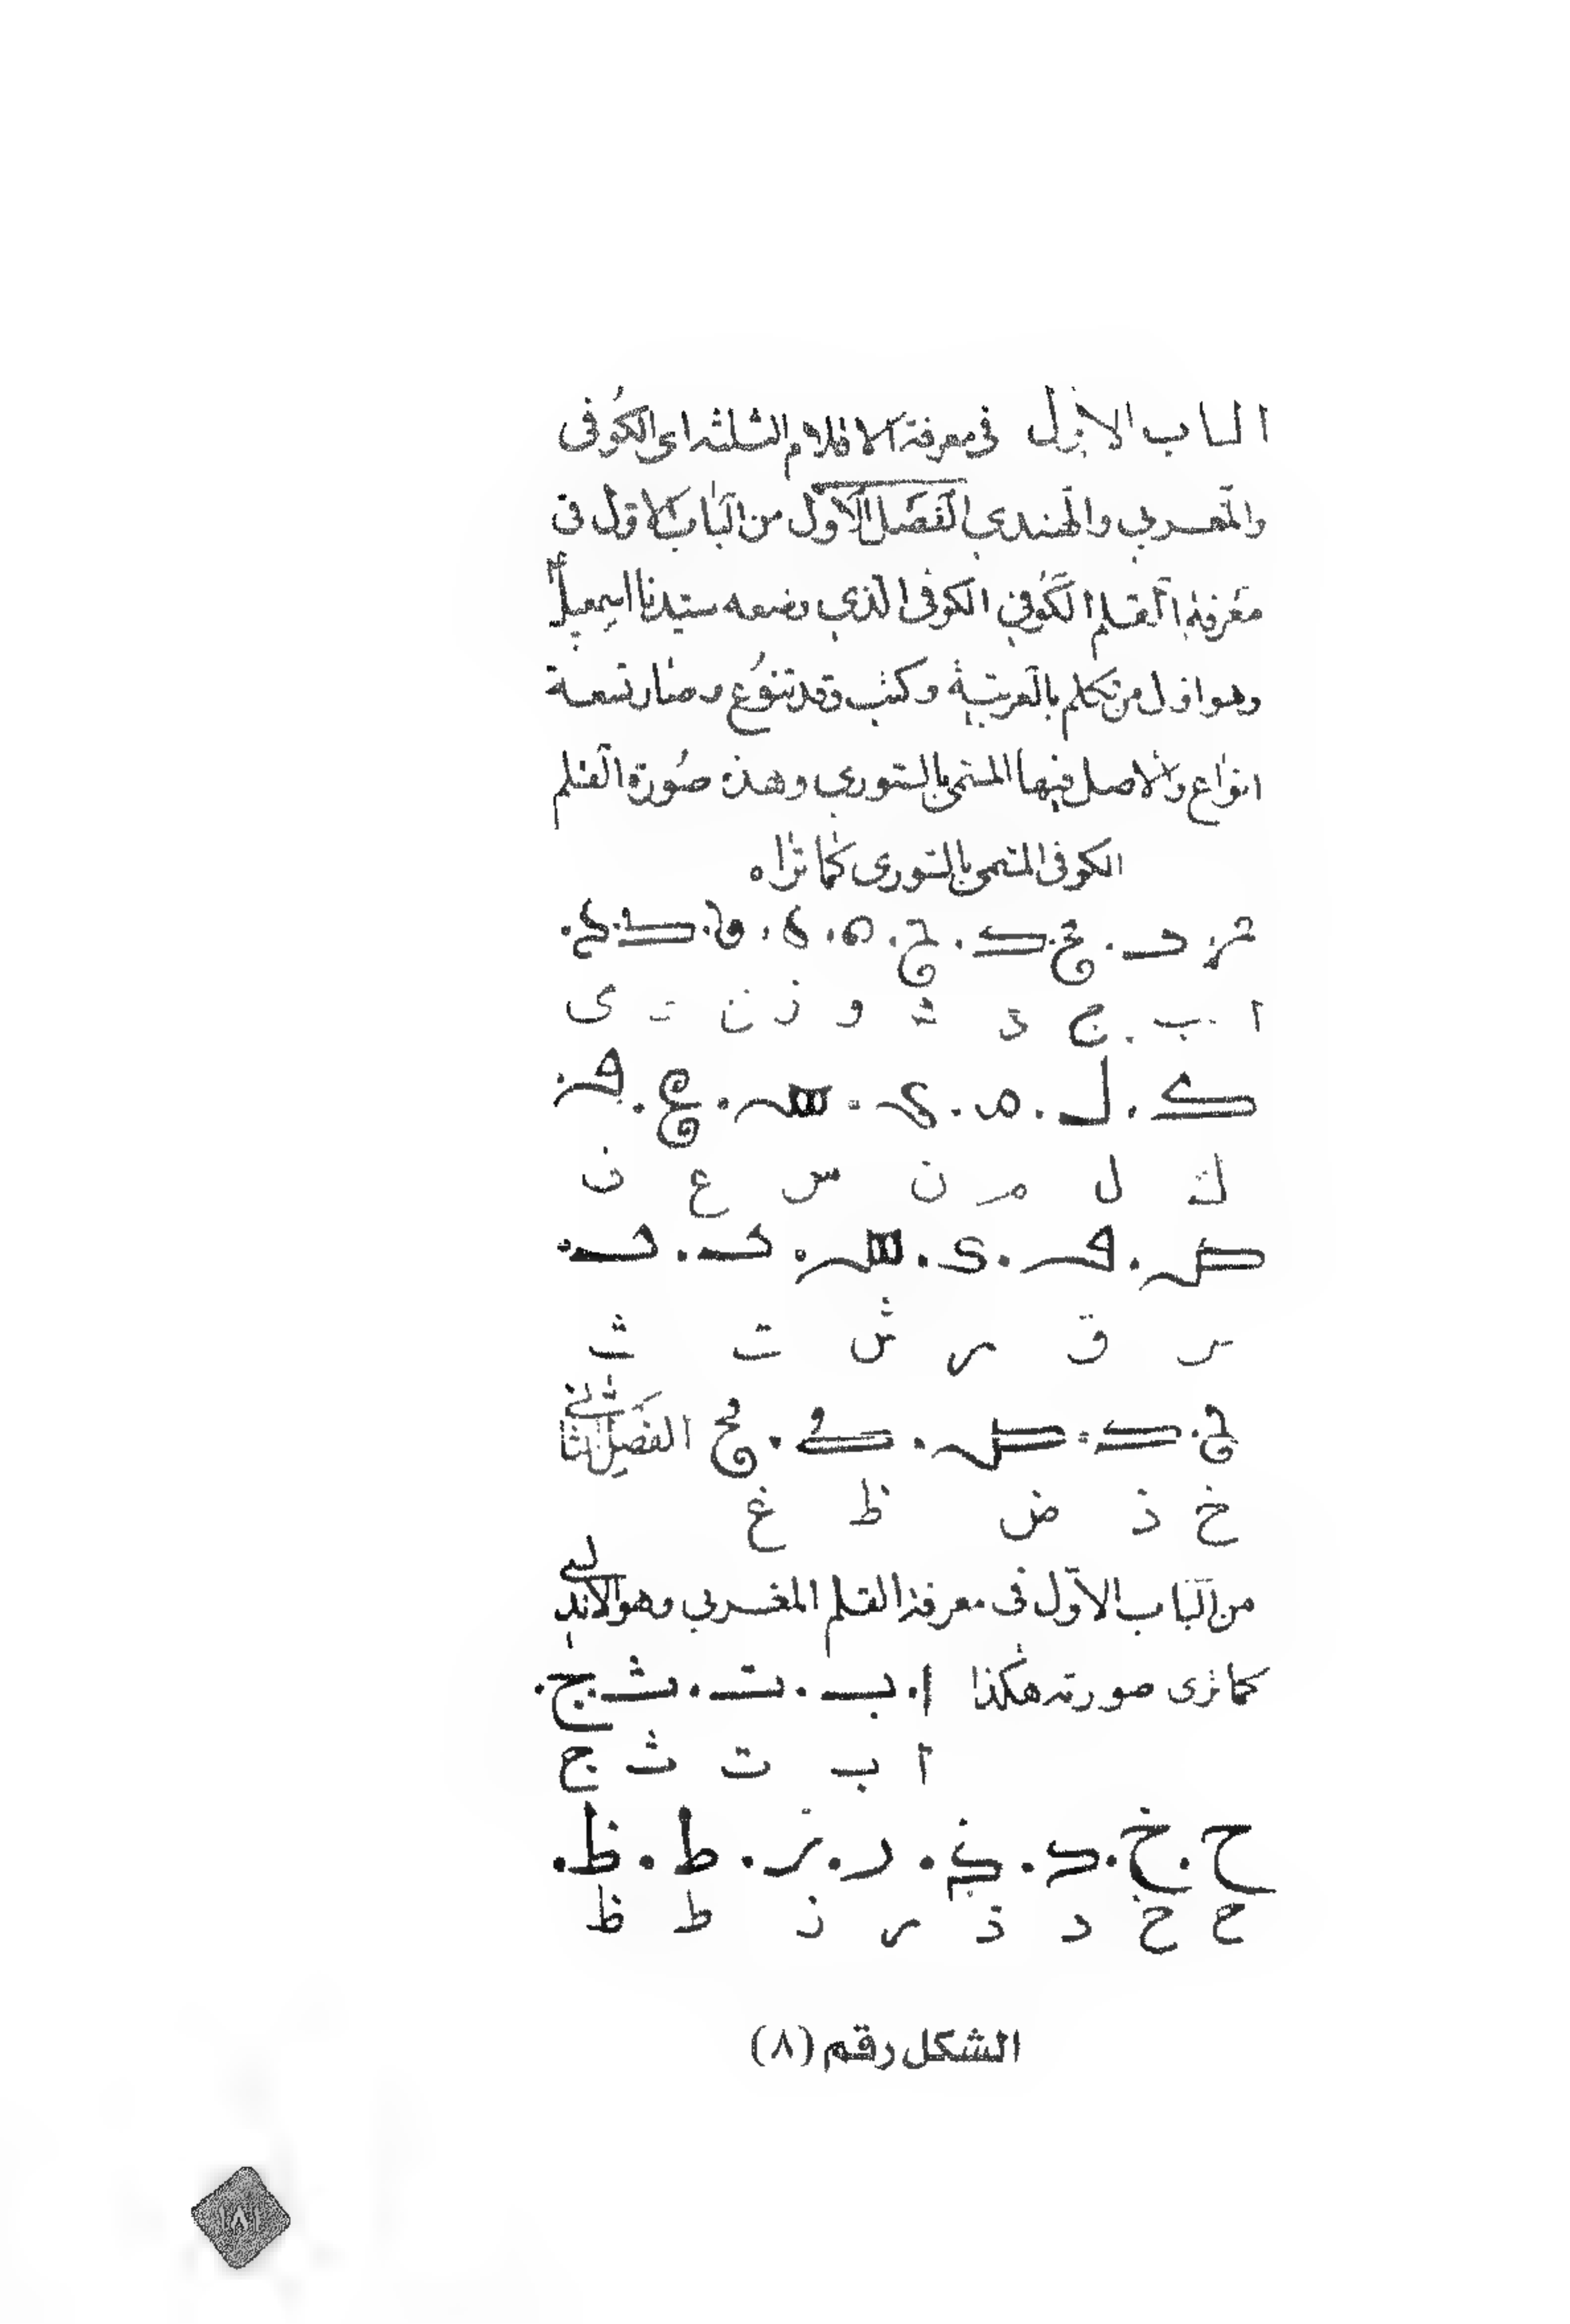 الباب الاول في معرفة الاقلام الثلثه اى الكوفى
والمغربي والهندي الفصل الاول من الباب الاول فى
معرفة القلم الكوفي الكوفى الذي وضعه سيدنا اسمعيل
وهو اول من تكلم بالعربية وكتب وقد تنوع وصار تسعة
انواع والاصل فيها المسمى بالسوري وهذه صورة القلم
الكوفى المسمى بالسورى كما تراه
ا ب ج د و ز ى
ك ل م ن س ع ف
ق ر ش ت ث
الفصل الثاني
خ ذ ض ظ غ
من الباب الاول فى معرفة القلم المغربي وهو الاندلسي
كما ترى صورته هكذا ا . ب . ت . ث . ج .
ا ب ت ث ج
ح . خ . د . ذ . ر . ز . ط . ظ .
ح خ د ذ ر ز ط ظ
الشكل رقم (٨)
١٨١